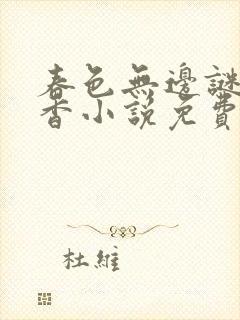 春色無邊謎
香小説免費
杜維